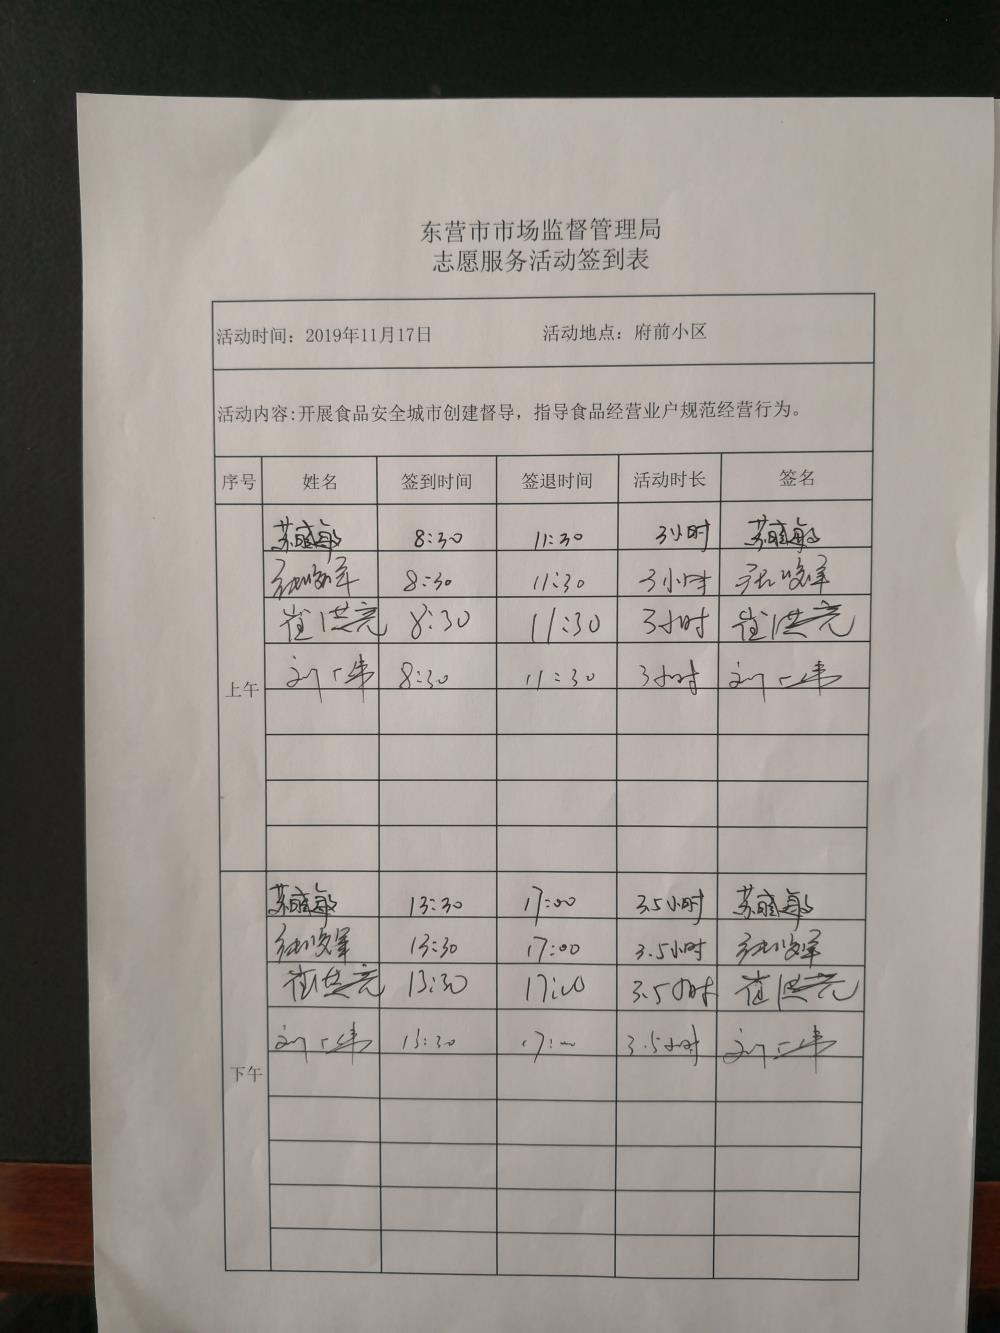 东营市市场监督管理局
志愿服务活动签到表
活动时间：2019年11月17日 活动地点：府前小区
活动内容:开展食品安全城市创建督导，指导食品经营业户规范经营行为。
序号 姓名 签到时间 签退时间 活动时长 签名
上午
8:30 11:30 3小时
8:30 11:30 3小时
崔洪亮 8:30 11:30 3小时 崔洪亮
8:30 11:30 3小时
下午
13:30 17:00 3.5小时
13:30 17:00 3.5小时
崔洪亮 13:30 17:00 3.5小时 崔洪亮
13:30 17:00 3.5小时